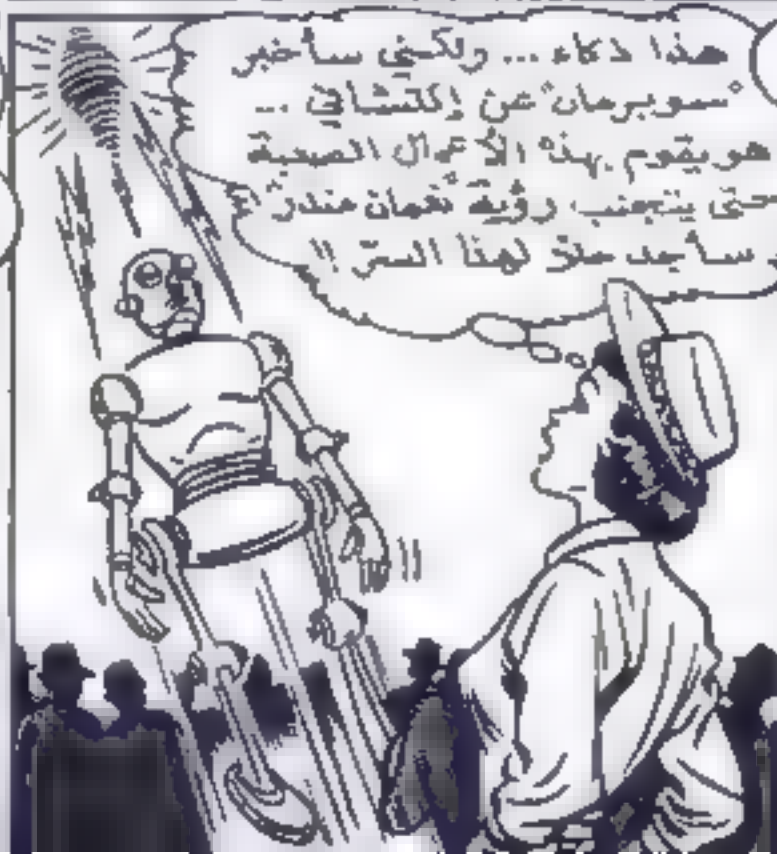 هذا ذكاء ... ولكني سأخبر
"سوبرمان" عن إكتشافي ...
هو يقوم بهذه الأعمال الصعبة
حتى يتجنب رؤية "نعمان منذر"!
سأجد حلاً لهذا السرّ !!